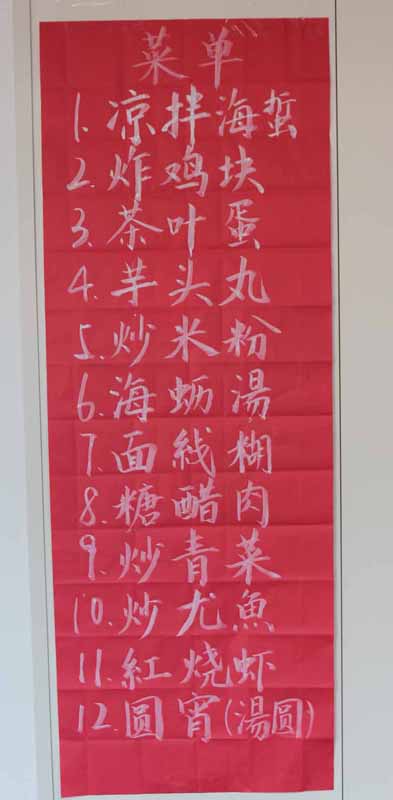 菜单
1. 凉拌海蜇
2. 炸鸡块
3. 茶叶蛋
4. 芋头丸
5. 炒米粉
6. 海蛎湯
7. 面线糊
8. 糖醋肉
9. 炒青菜
10. 炒尤魚
11. 紅烧虾
12. 圆宵(湯圓)